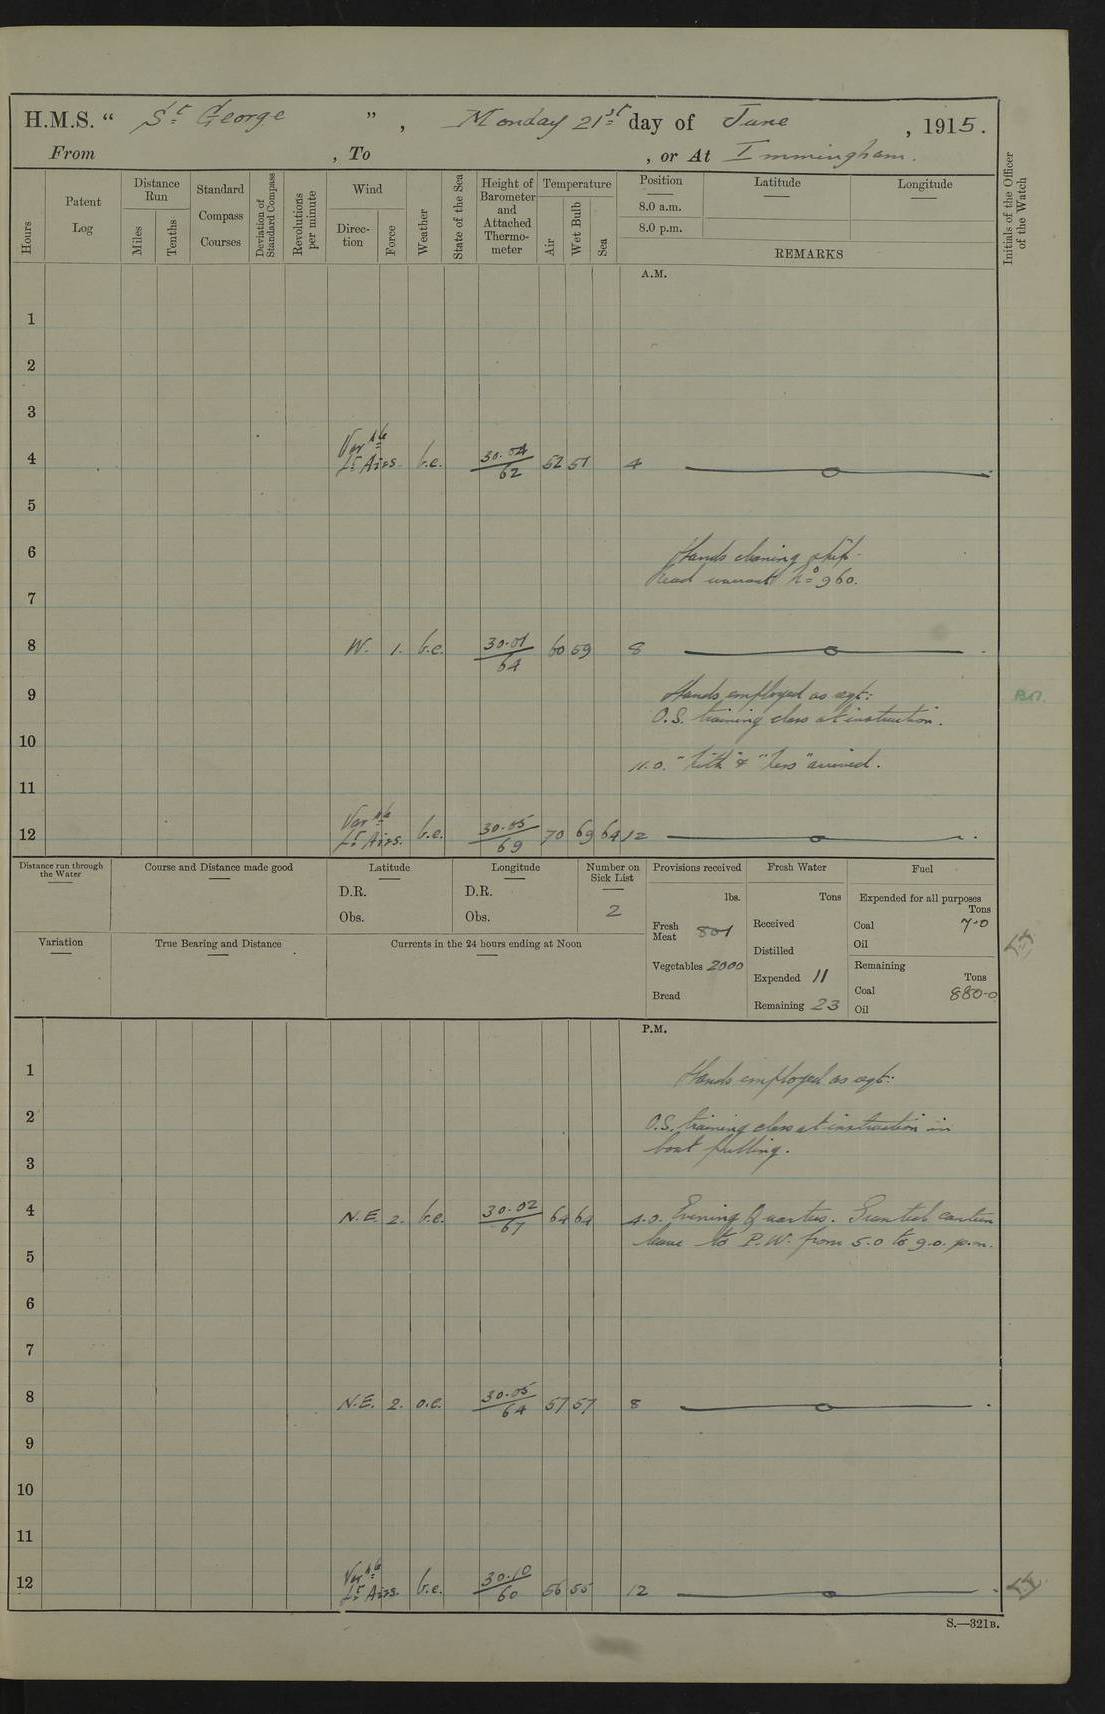 H.M.S. “ St George ” , Monday 21st day of June , 1915.
From , To , or At Immingham.
Hours
Patent Log
Distance Run
Miles
Tenths
Standard Compass Courses
Deviation of Standard Compass
Revolutions per minute
Wind
Direction
Force
Weather
State of the Sea
Height of Barometer and Attached Thermometer
Temperature
Air
Wet Bulb
Sea
Position
8.0 a.m.
8.0 p.m.
Latitude
Longitude
REMARKS
Initials of the Officer of the Watch
A.M.
1
2
3
4 Varble Lt Airs. b.c. 30.04/62 52 51 4
5
6 Hands cleaning ship.
Read warrant No 960.
7
8 W. 1. b.c. 30.01/64 60 59 8
9 Hands employed as reqt:
O.S. training class at instruction.
10
11.0. arrived.
11
12 Varble Lt Airs. b.c. 30.05/69 70 69 64 12
Distance run through the Water
Course and Distance made good
Latitude
D.R.
Obs.
Longitude
D.R.
Obs.
Number on Sick List
2
Provisions received
lbs.
Fresh Meat 801
Vegetables 2000
Bread
Fresh Water
Tons
Received
Distilled
Expended 11
Remaining 23
Fuel
Expended for all purposes
Tons
Coal 7.0
Oil
Remaining
Tons
Coal 880.0
Oil
Variation
True Bearing and Distance
Currents in the 24 hours ending at Noon
P.M.
1 Hands employed as reqt:
2 O.S. training class at instruction in
boat pulling.
3
4 N.E. 2. b.c. 30.02/67 64 64 4.0. Evening Quarters. Granted canteen
leave to P.W. from 5.0 to 9.0. p.m.
5
6
7
8 N.E. 2. o.c. 30.05/64 57 57 8
9
10
11
12 Varble Lt Airs. b.c. 30.10/60 56 55 12
S.—321B.